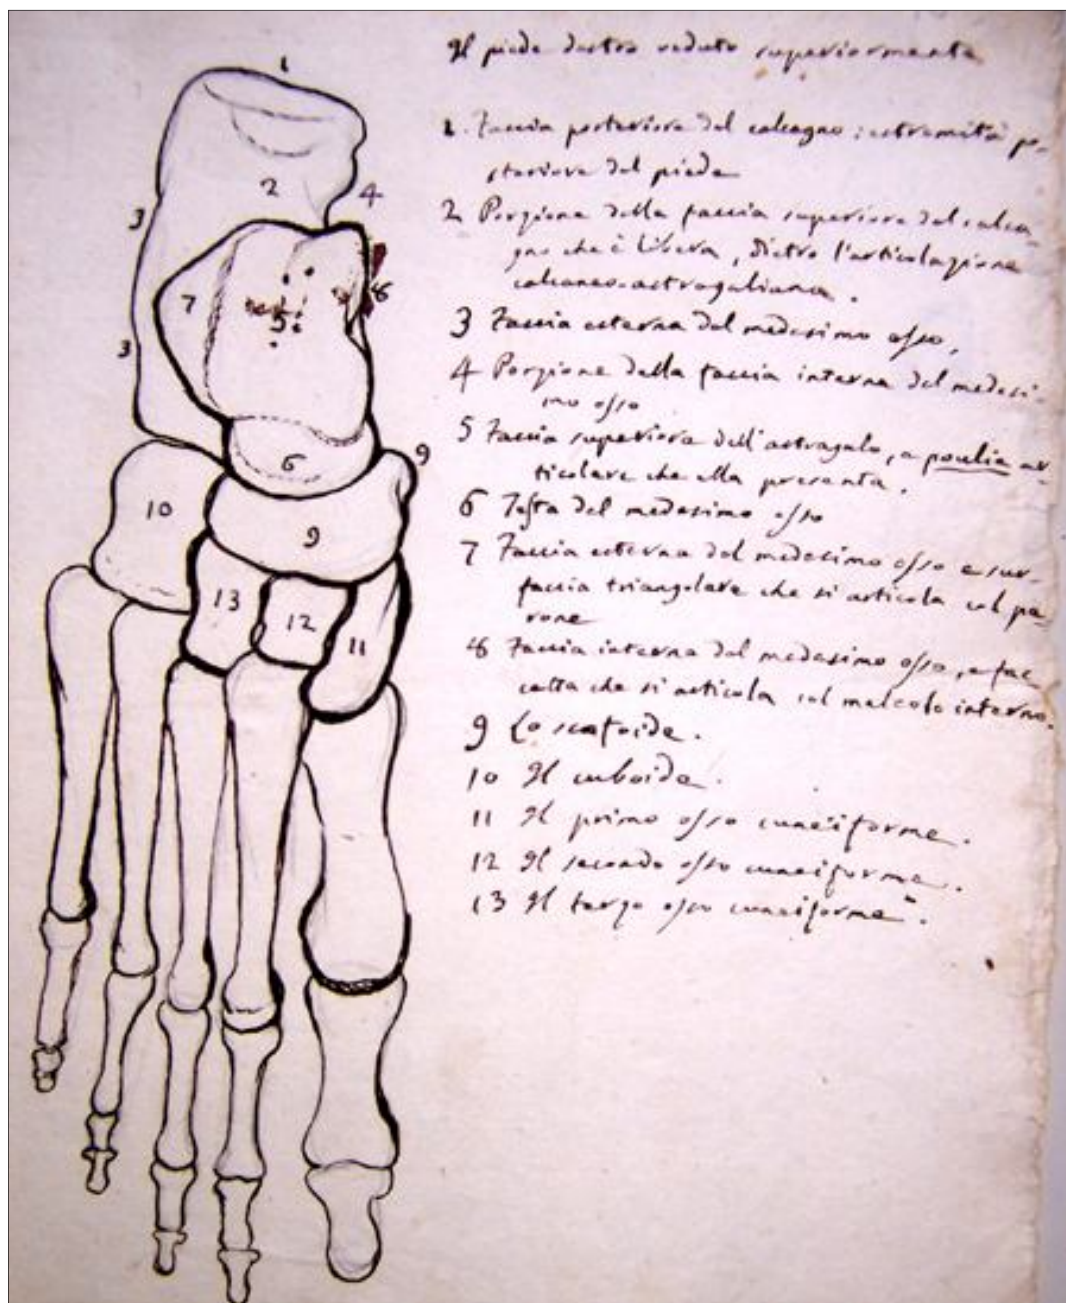 Il piede destro veduto superiormente
1. Faccia posteriore del calcagno: estremità po-
steriore del piede
2 Porzione della faccia superiore del calca-
gno che è libera, dietro l'articolazione
calcaneo-astragaliana.
3 Faccia esterna del medesimo osso.
4 Porzione della faccia interna del medesi-
mo osso
5 Faccia superiore dell'astragalo, e poulia ar-
ticolare che ella presenta.
6 Testa del medesimo osso
7 Faccia esterna del medesimo osso e sur-
faccia triangolare che si articola col pe-
rone
8 Faccia interna del medesimo osso, e fac-
cetta che si articola col maleolo interno.
9 Lo scafoide.
10 Il cuboide.
11 Il primo osso cuneiforme.
12 Il secondo osso cuneiforme.
13 Il terzo osso cuneiforme.
1
2
3
4
7
5
8
3
6
9
10
9
13
12
11